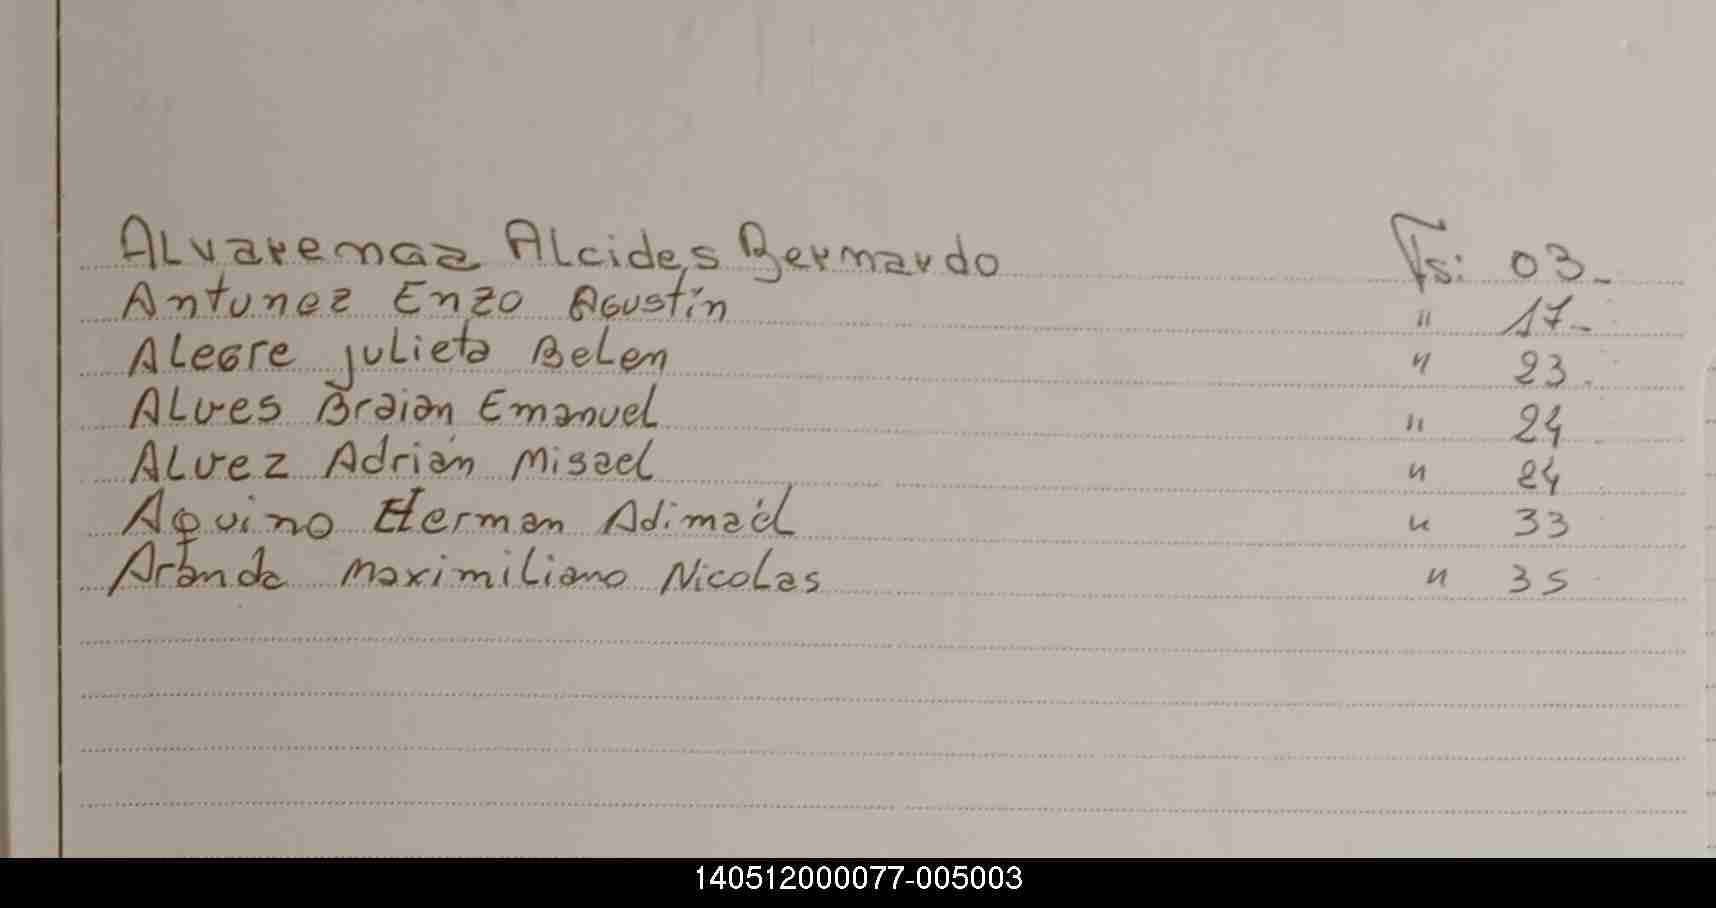 Alvarenga Alcides Bernardo Fs: 03_
Antunez Enzo Agustín " 17_
Alegre Julieta Belen " 23.
Alves Braian Emanuel " 24
Alvez Adrián Misael " 24
Aquino Herman Adimaél " 33
Aranda Maximiliano Nicolas " 35
140512000077-005003